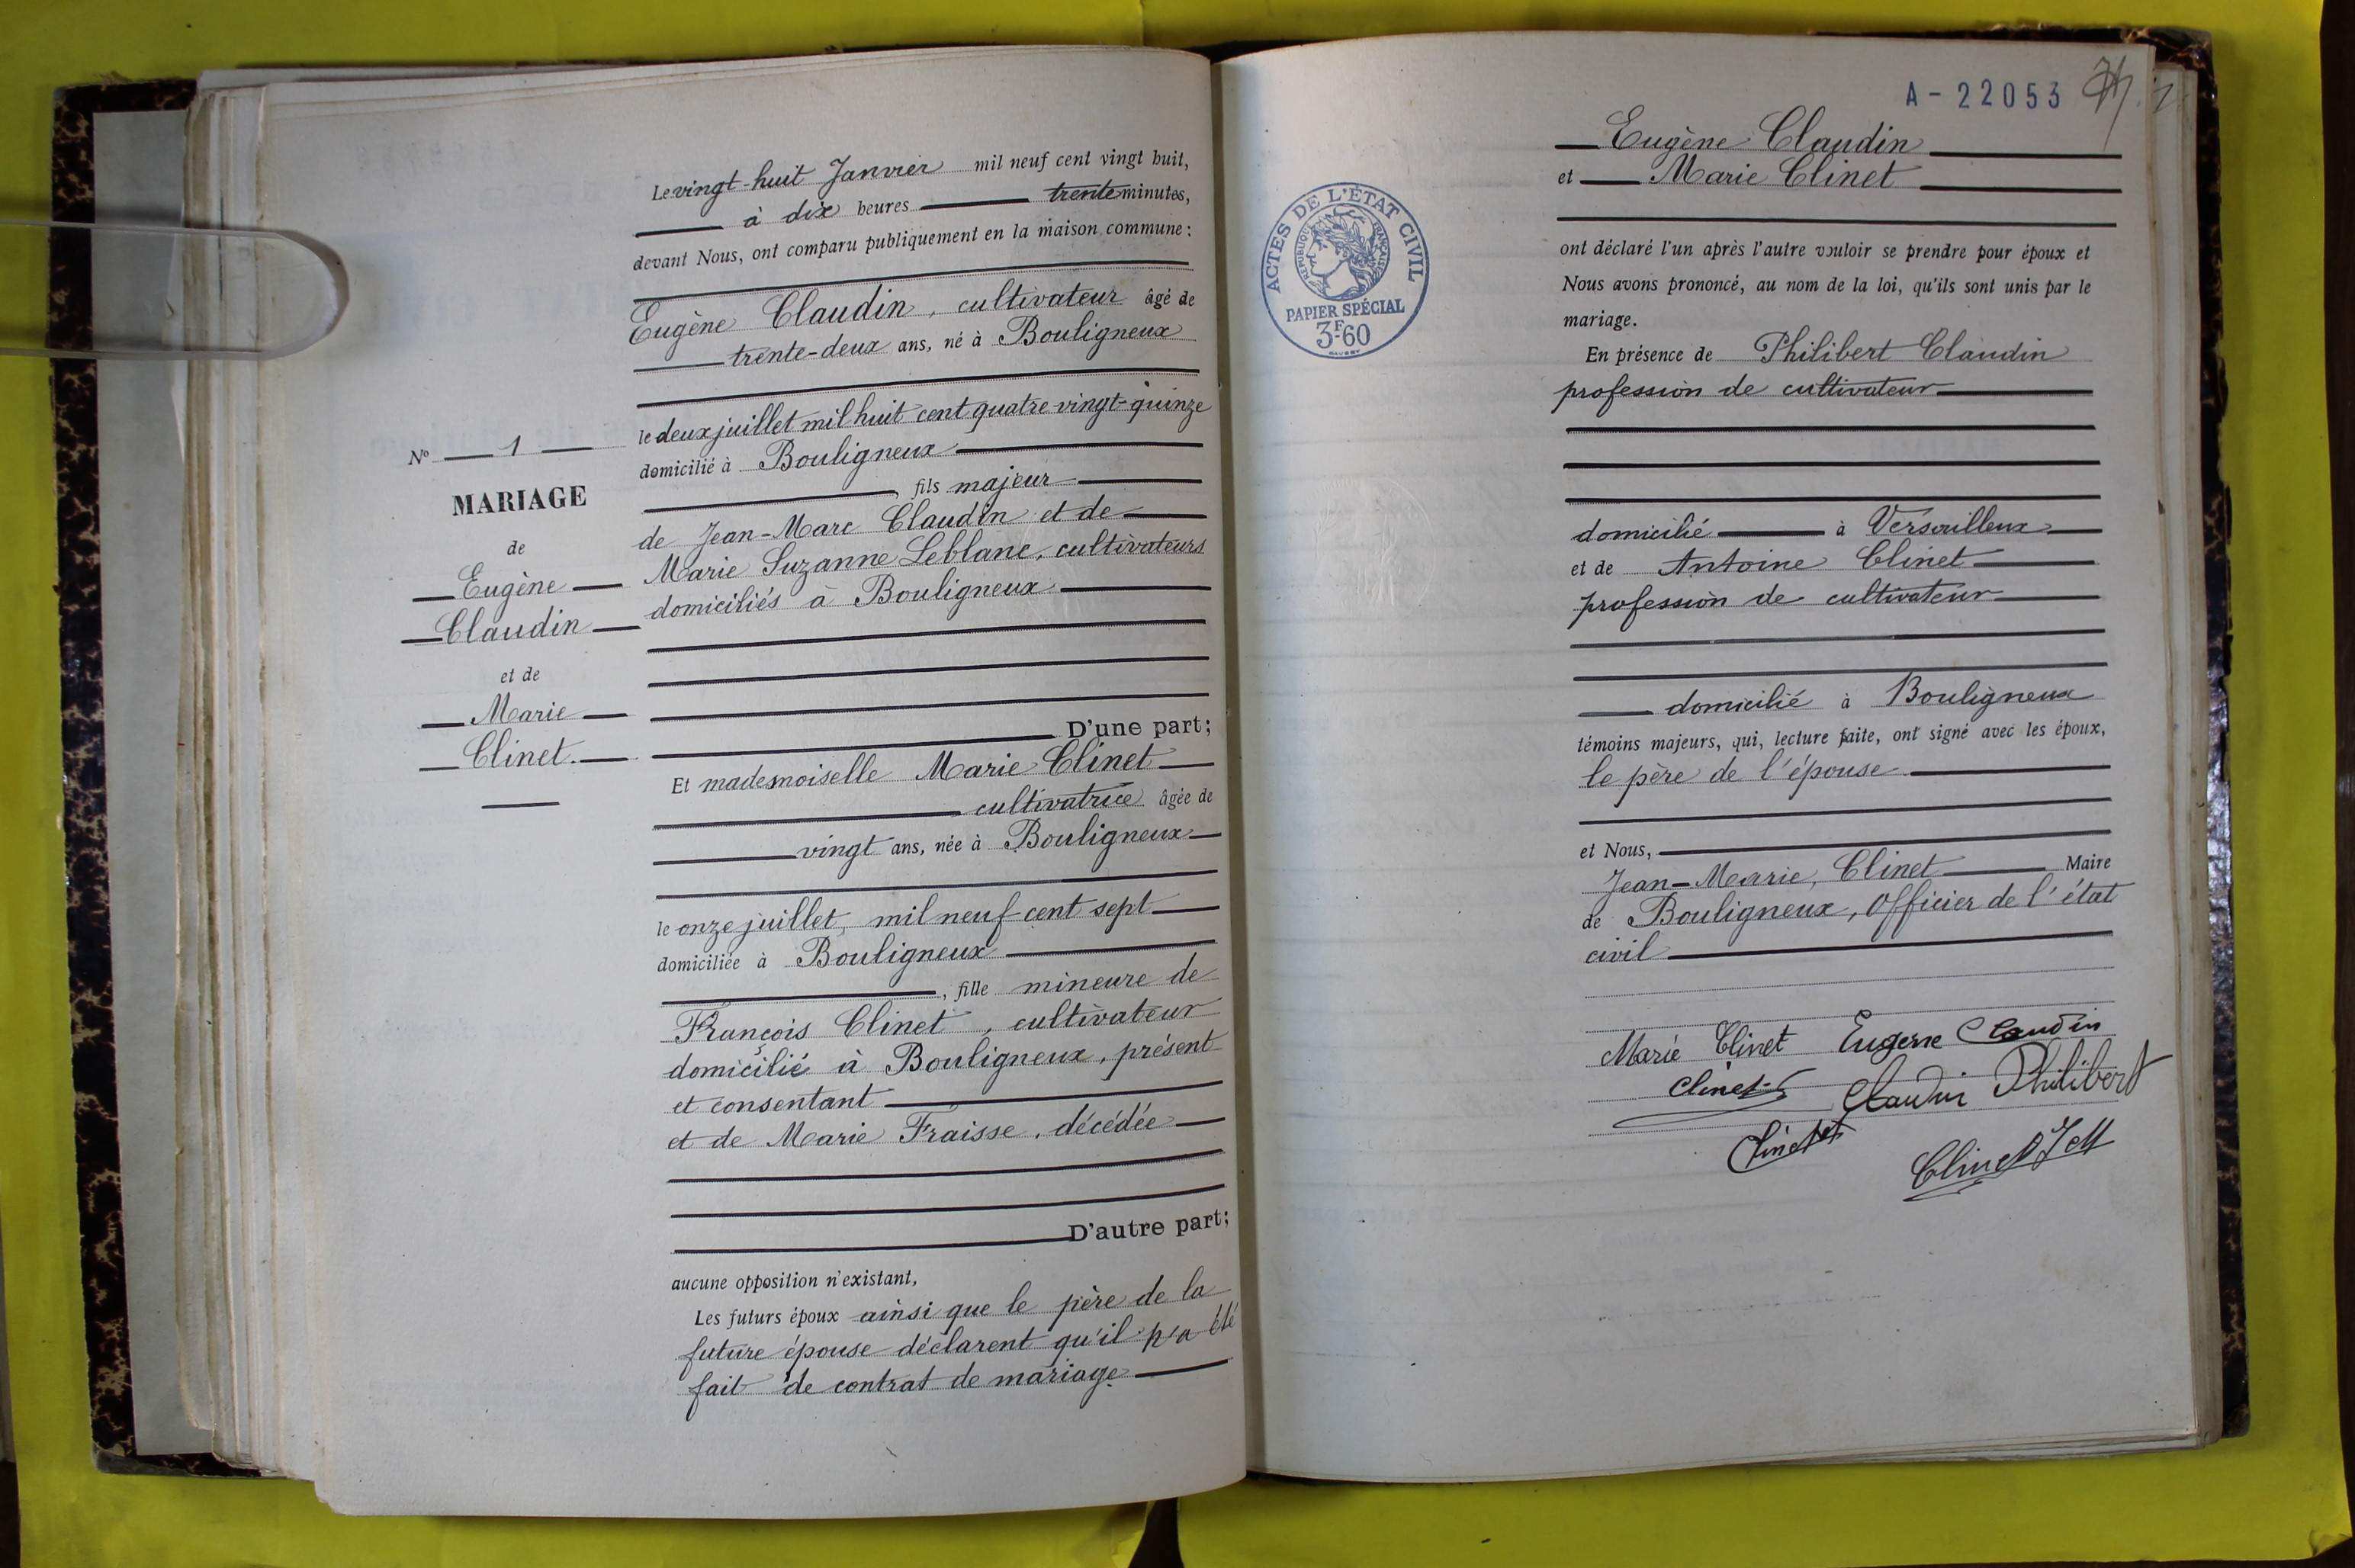 Le vingt-huit Janvier mil neuf cent vingt huit,
à dix heures trente minutes,
devant Nous, ont comparu publiquement en la maison commune :
Eugène Claudin, cultivateur âgé de
trente-deux ans, né à Bouligneux
le deux juillet mil huit cent quatre-vingt-quinze
domicilié à Bouligneux
, fils majeur
de Jean-Marc Claudin et de
Marie Suzanne Leblanc, cultivateurs
domiciliés à Bouligneux
D'une part;
Et mademoiselle Marie Clinet
cultivatrice âgée de
vingt ans, née à Bouligneux
le onze juillet, mil neuf cent sept
domiciliée à Bouligneux
, fille mineure de
François Clinet, cultivateur
domicilié à Bouligneux, présent
et consentant
et de Marie Fraisse, décédée
D'autre part;
aucune opposition n'existant,
Les futurs époux ainsi que le père de la
future épouse déclarent qu'il n'a été
fait de contrat de mariage
N° 1
MARIAGE
de
Eugène
Claudin
et de
Marie
Clinet.
A-22053
Eugène Claudin
et Marie Clinet
ont déclaré l'un après l'autre vouloir se prendre pour époux et
Nous avons prononcé, au nom de la loi, qu'ils sont unis par le
mariage.
En présence de Philibert Claudin
profession de cultivateur
domicilié à Versailleux
et de Antoine Clinet
profession de cultivateur
domicilié à Bouligneux
témoins majeurs, qui, lecture faite, ont signé avec les époux,
le père de l'épouse.
et Nous,
Jean-Marie, Clinet Maire
de Bouligneux, Officier de l'état
civil
Marie Clinet Eugene Claudin
Clinet Claudin Philibert
Clinet
Clinet J M
ACTES DE L'ÉTAT CIVIL
RÉPUBLIQUE FRANÇAISE
PAPIER SPÉCIAL
3F60